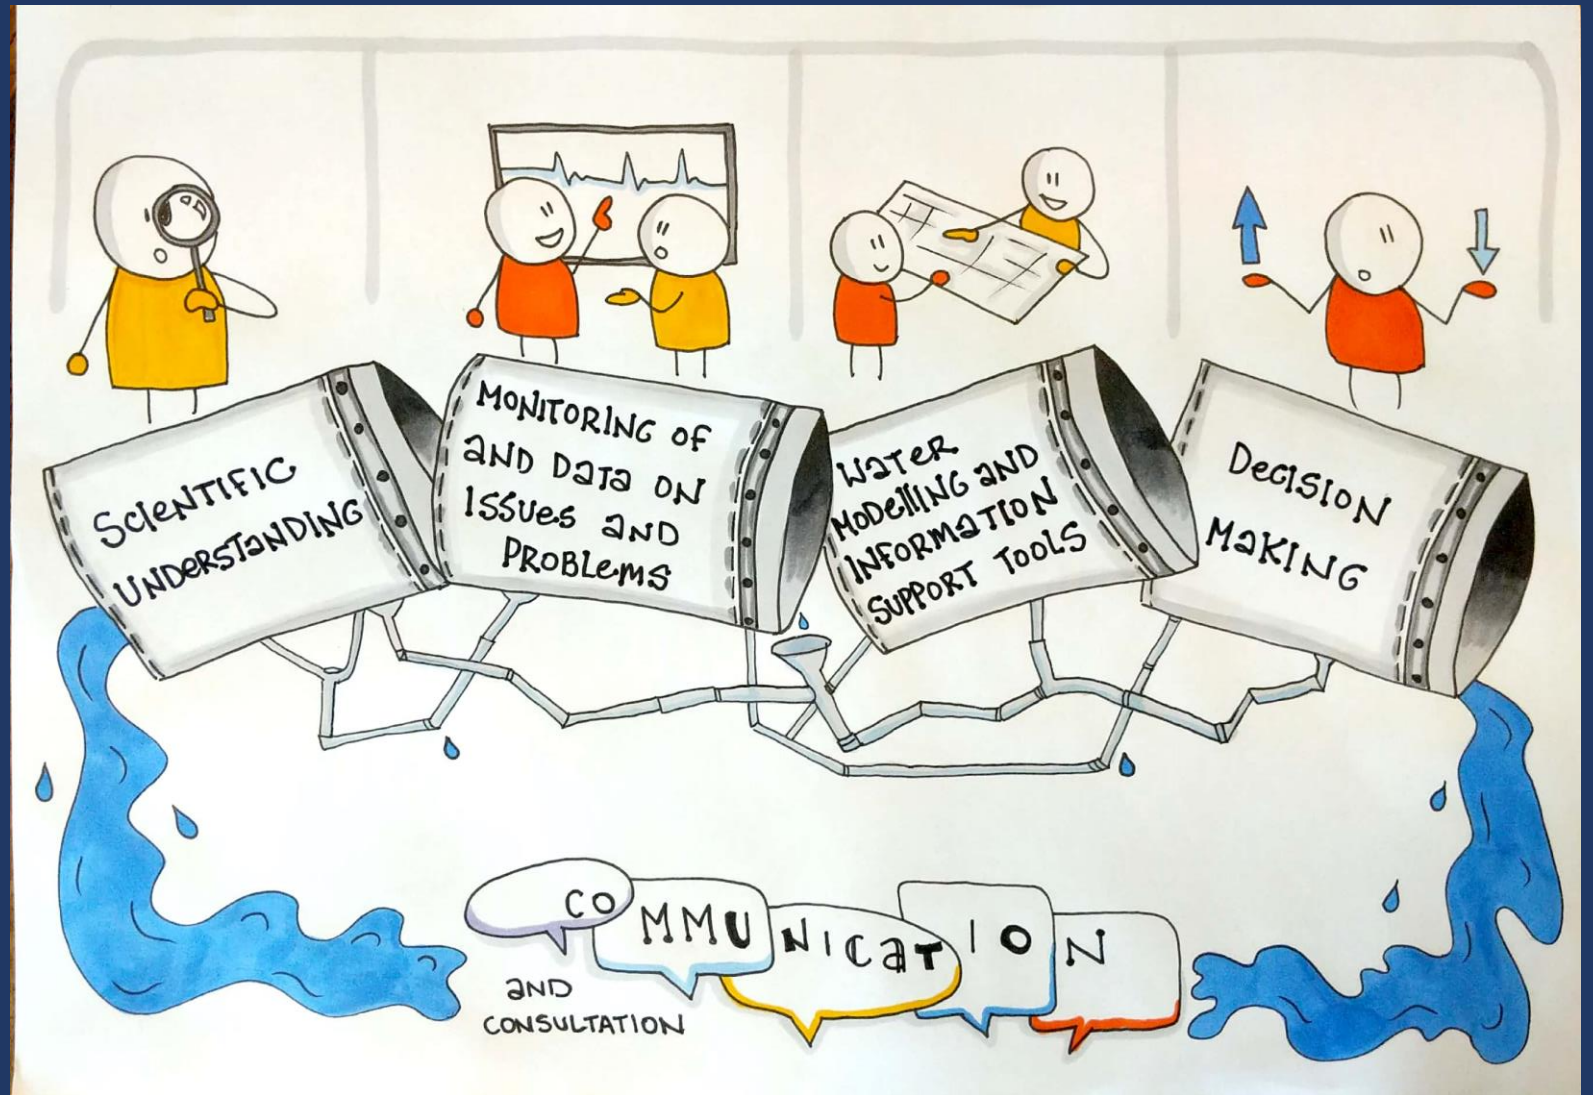 Scientific
Understanding
Monitoring of
and Data on
Issues and
Problems
Water
Modelling and
Information
Support Tools
Decision
Making
Communication
and
Consultation